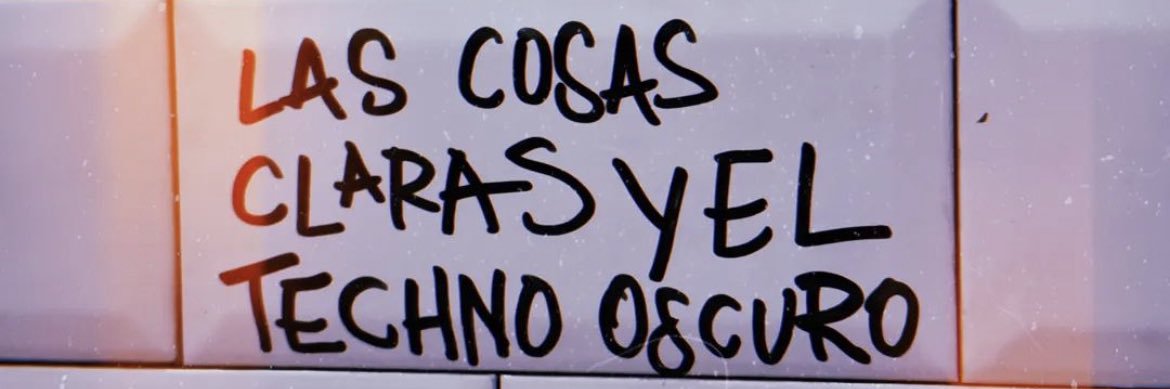 LAS COSAS
CLARAS Y EL
TECHNO OSCURO